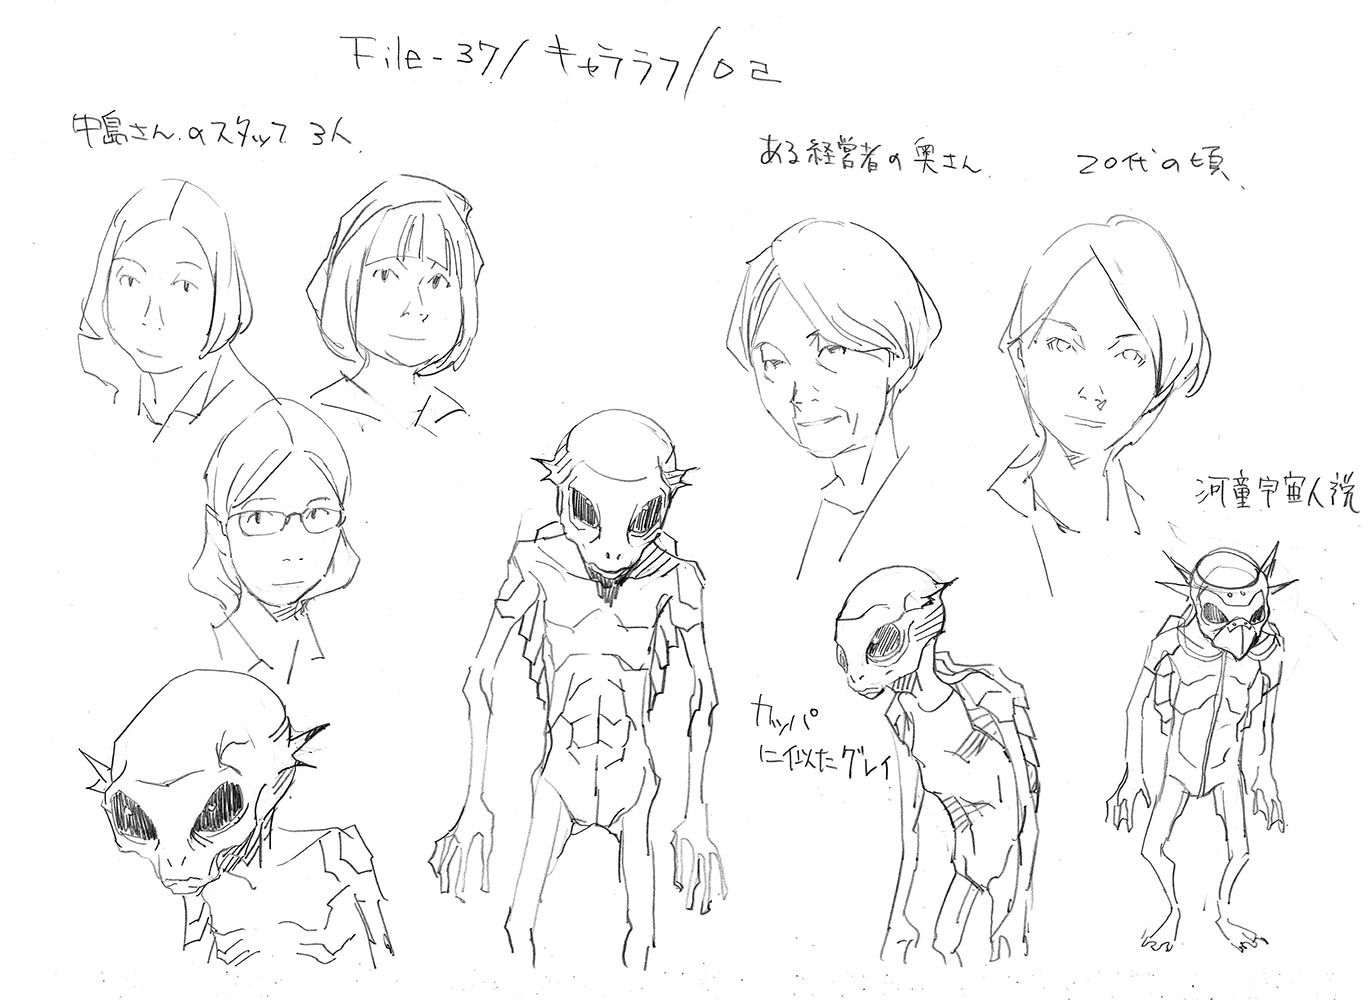 File-37/キャララフ/02
中島さん.のスタッフ 3人.
ある経営者の奥さん.
20代の頃、
河童宇宙人説
カッパ
に似たグレイ